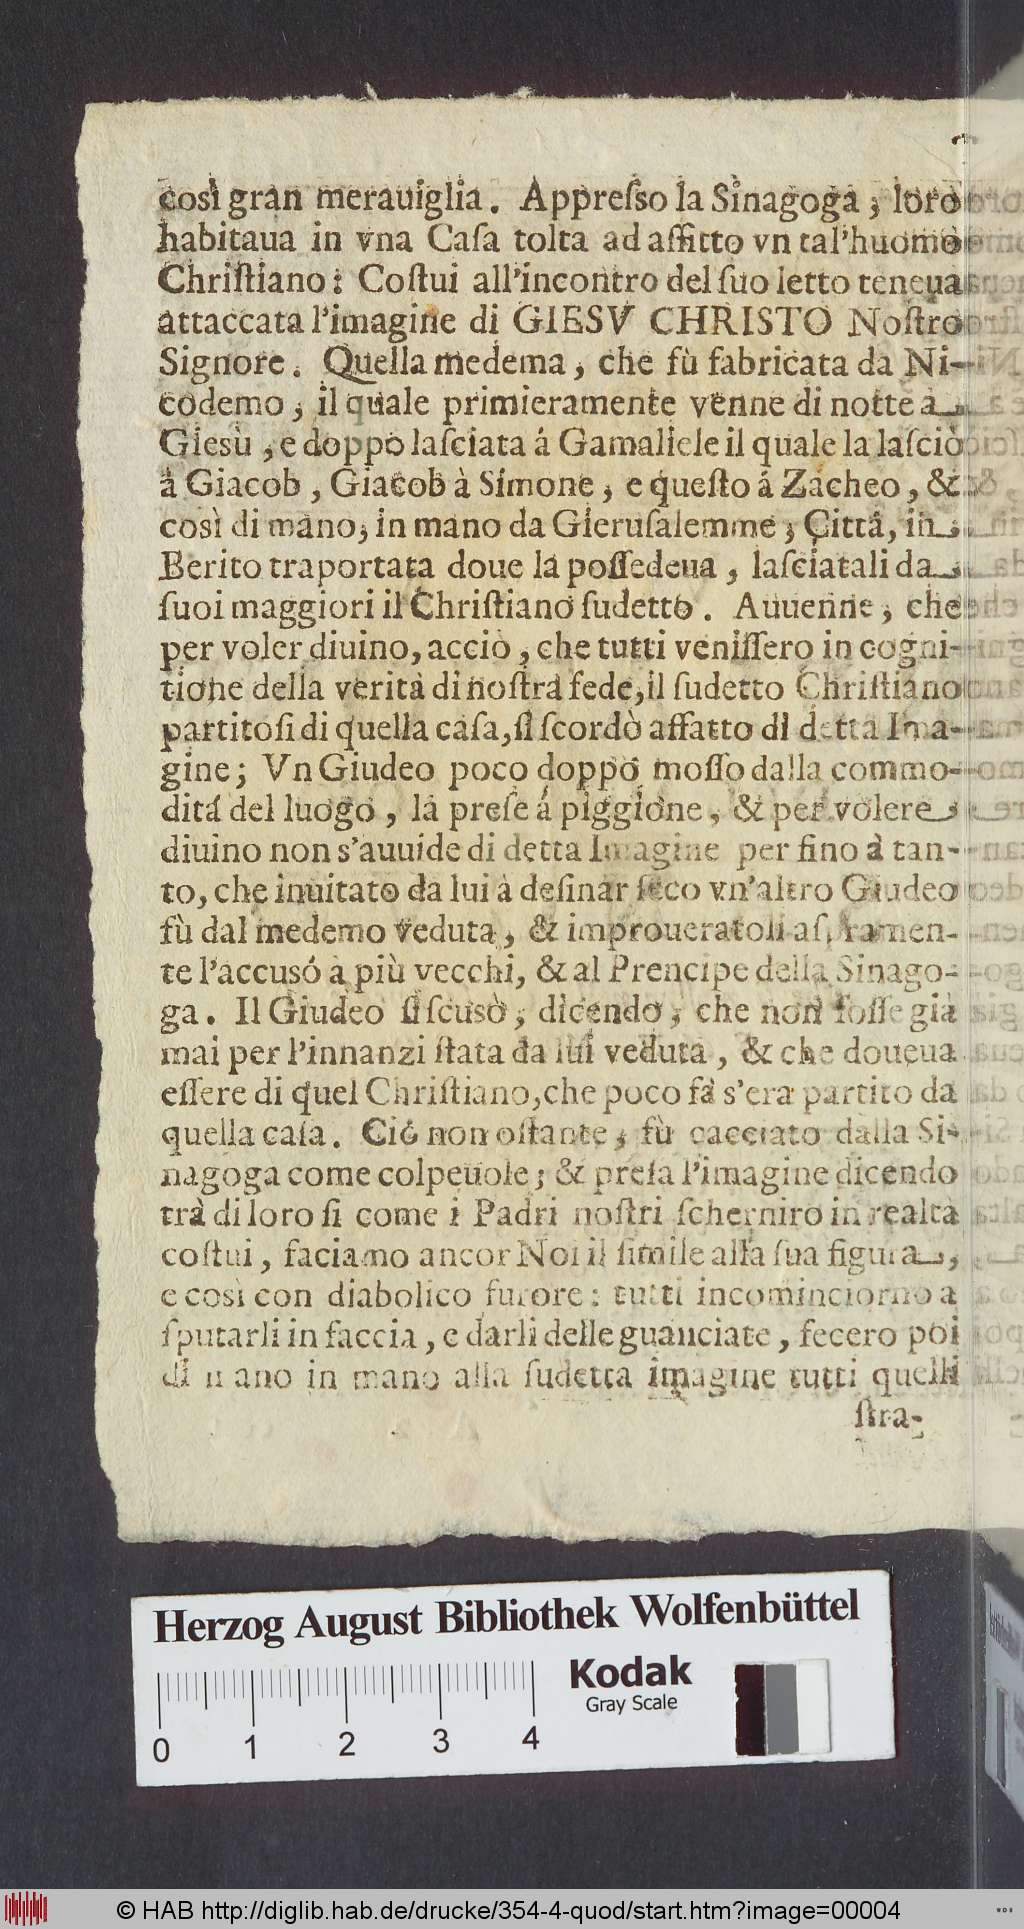 così gran merauiglia. Appreſso la Sinagoga, loro
habitaua in vna Caſa tolta ad affitto vn tal'huomo
Chriſtiano: Coſtui all'incontro del ſuo letto teneua
attaccata l'imagine di GIESV CHRISTO Noſtro
Signore. Quella medema, che fù fabricata da Ni-
codemo, il quale primieramente venne di notte à
Giesù, e doppo laſciata á Gamaliele il quale la laſciò
à Giacob, Giacob à Simone, e queſto á Zacheo, &
così di mano, in mano da Gieruſalemme, Cittá, in
Berito traportata doue la poſſedeua, laſciatali da
ſuoi maggiori il Chriſtiano ſudetto. Auuenne, che
per voler diuino, acciò, che tutti veniſſero in cogni-
tione della verità di noſtra fede, il ſudetto Chriſtiano
partitoſi di quella caſa, ſi ſcordò affatto di detta Ima-
gine; Vn Giudeo poco doppo moſſo dalla commo-
ditá del luogo, la preſe á piggione, & per volere
diuino non s'auuide di detta Imagine per fino à tan-
to, che inuitato da lui à deſinar ſeco vn'altro Giudeo
fù dal medemo veduta, & improueratoli aſpramen-
te l'accusó a più vecchi, & al Prencipe della Sinago-
ga. Il Giudeo ſi ſcusò, dicendo, che non foſſe già
mai per l'innanzi ſtata da lui veduta, & che doueua
eſſere di quel Chriſtiano, che poco fà s'era partito da
quella caſa. Ció non oſtante, fù cacciato dalla Si-
nagoga come colpeuole; & preſa l'imagine dicendo
trà di loro ſi come i Padri noſtri ſcherniro in realtà
coſtui, faciamo ancor Noi il ſimile alla ſua figura,
e così con diabolico furore: tutti incominciorno a
ſputarli in faccia, e darli delle guanciate, fecero poi
di mano in mano alla ſudetta imagine tutti quelli
ſtra-
Herzog August Bibliothek Wolfenbüttel
Kodak
Gray Scale
0 1 2 3 4
© HAB http://diglib.hab.de/drucke/354-4-quod/start.htm?image=00004